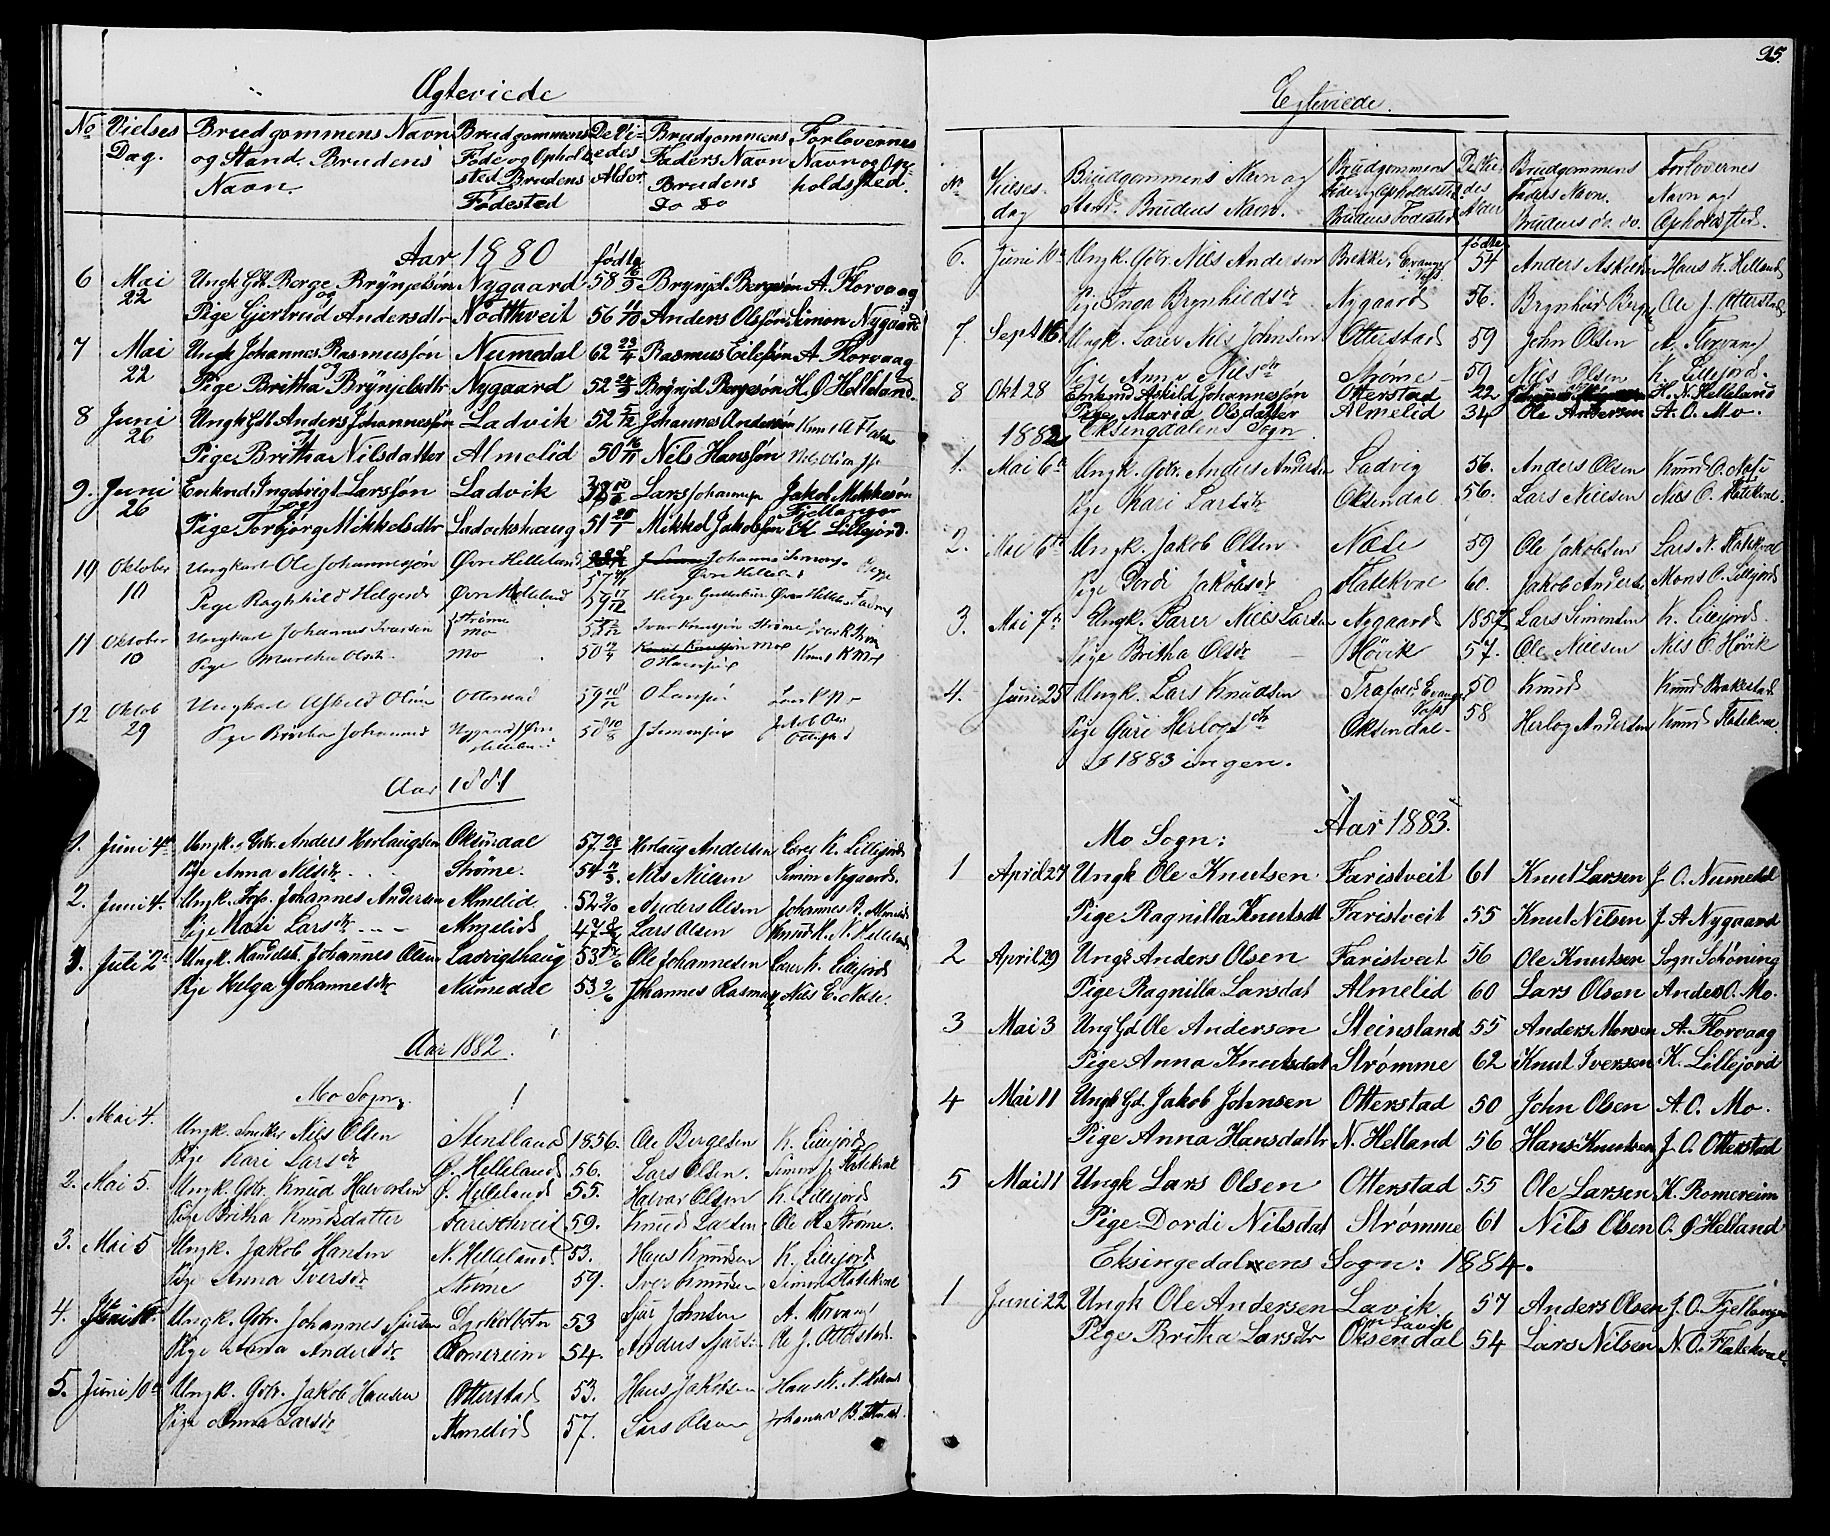 Ægteviede
No Vielses Dag. Brudgommens Navn og Stand. Brudens Navn Brudgommens Føde og Opholdsted Brudens Fødested De Viedes Alder Brudgommens Faders Navn Brudens Do Do Forlovernes Navn og Opholdssted.
Aar 1880 fødte
6 Mai 22 Ungk Gbr Børge Brynjelsøn Nygaard 58 16/3 Brynjel Bergesøn A. Florvaag
og
Pige Gjertrud Andersdtr Nøttveit 56 11/10 Anders Olsføn Simon Nygaard
7 Mai 22 Ungk Johannes Rasmussøn Numedal 62 23/4 Rasmus Eilefsøn A. Florvaag
og
Pige Britha Brynjelsdtr Nygaard 52 Brynjel Bergesøn H. O Helleland
8 Juni 26 Ungk Gbr Anders Johannessøn Ladvik 52 Johannes Andersøn Knut A
og
Pige Britha Nilsdatter Almelid 50 16/11 Nils Hansføn
9. Juni 26 Enkmd Ingebrigt Larsføn Ladvik Lars Johannesn Jakob Mikkelsøn
og Fjellanger
Pige Torbjørg Mikkelsdtr Ladvikshaug 51 Mikkel Jakobsføn K. Lillejord.
10 Oktober 10 Ungkarl Ole Johannessøn Øvre Helleland Johannes Simonsn
Øvre Helleland
Pige Raghhild Helgesd Øvre Helleland 59 Helge
11 Oktober 10 Ungkarl Johannes Ivarsen Strøme Ivar Knutsøn Strøme
Mo
Pige Martha Olsdt. Mo 50 Knut K Mo
12 Oktob 29 Ungkarl Askild Olsøn Otterstad 59
Pige Britha Johannesd Nygaard 58 10/8
Aar 1881
1. Juni 4de Ungk. Gbr. Anders Herlaugsen Oksendal 57 Herlaug Andersen Lærer K. Lillejord
Pige Anna Nilsdr Strøme. 54 Nils Nilsen Simon Nygaard.
2. Juni 4. Ungk. Johannes Andersen Almelid 52 Anders Olsen Johannes B. Almelid
Pige Kari Larsdr Almelid 47 Lars Olsen Knud K. N. Helleland
3. Juli 2n Ungk. Johannes Olsen Ladvigshaug 53 Ole Johannesen Lærer K. Lillejord
Pige Helga Johannesdr Numedal 53 2/6 Johannes Rasmus Nils E. Mo
Aar 1882.
Mo Sogn.
1. Mai 4. Ungk. Snikker Nils Olsen Stensland 1856. Ole Bergesen K. Lillejord
Pige Kari Larsdr Ø. Helleland 56. Lars Olsen. Simon J. Flatekval
2. Mai 5. Ungk. Gbr. Knud Halvorsen Ø. Helleland 55. Halvor Olsen K. Lillejord
Pige Britha Knudsdatter Faristhveit 59. Knud Larsen Ole K Strøme.
3. Mai 5 Ungk. Jakob Hansen N. Helleland 53. Hans Knudsen K. Lillejord
Pige Anna Iversdr Strøme 59. Iver Knudsen Simon Flatekval
4. Ungk. Gbr. Johannes Sjursen 53 Sjur Johnsen A. Florvaag
Pige Anna Andersdr Romereim 54. Anders Sjursen Ole J. Otterstad.
5. Juni 10de Ungk. Gbr. Jakob Hansen Otterstad 53. Hans Jakobsen Hans K. N. Helland
Pige Anna Larsdr Almelid 57. Lars Olsen Johannes B. Almelid.
95.
Egteviede.
No Vielses dag Brudgommens Navn og Stand. Brudens Navn. Brudgommens Føde og Opholdsted Brudens Fødested De Viedes Alder Brudgommens Faders Navn. Brudens do. do. Forlovernes Navn og Opholdssted.
fødte
6. Juni 10de Ungk. Gbr. Nils Andersen Brekke, Evanger 54 Anders Askildsen Hans K. Helland
Pige Inga Brynhildsdr Nygaard 56. Brynhild Berge Ole J. Otterstad
7. Sept 16. Ungk. Lærer Nils Johnsen Otterstad 59 John Olsen A. Florvaag
Pige Anna Nilsdr Strøme 59 Nils Olsen K. Lillejord.
8 Okt 28 Enkmd Askild Johannesføn Otterstad 22 H. N. Helleland
Pige Maria Olsdatter Almelid 34 Ole Andersen A. O. Mo.
1882 Eksingdalens Sogn
1. Mai 6te Ungk. Gbr. Anders Andersen Ladvig 56. Anders Olsen Knud O. Nese
Pige Kari Larsdr Oksendal 56. Lars Nielsen Nils O. Flatekval.
2. Mai 6te Ungk. Jakob Olsen Nese 59 Ole Jakobsen Lars N. Flatekval
Pige Dordi Jakobsdr Flatekval 60. Jakob Anders Mons O. Lillejord
3. Mai 7de Ungk. Lærer Nils Larsen Nygaard 1857 Lars Simonsen K. Lillejord.
Pige Britha Olsdr Høvik 57. Ole Nielsen Nils O. Høvik
4. Juni 25 Ungk. Lars Knudsen Trafoed, Evanger 50 Knud Knud Brakestad
Pige Guri Herlogsdr Oksendal 58 Herlog Andersen Knud Flatekval.
I 1883 ingen.
Aar 1883.
Mo Sogn:
1 April 27 Ungk Ole Knutsen Faristveit 61 Knut Larsen J. O. Numedal
Pige Ragnilla Knutsdt Faristveit 55 Knut Nilsen J. A Nygaard
2 April 29 Ungk Anders Olsen Faristveit 56 Ole Knutsen Sogn Schøning
Pige Ragnilla Larsdat Almelid 60 Lars Olsen Anders O. Mo.
3 Mai 3 Ung Gd Ole Andersen Steinsland 55 Anders Monsen A. Florvaag
Pige Anna Knutsdat Strømme 62 Knut Iversen K. Lillejord
4 Mai 11 Ungk Gd. Jakob Johnsen Otterstad 50 John Olsen A. O. Mo.
Pige Anna Hansdattr N. Helland 56 Hans Knutsen J. O. Otterstad
5 Mai 11 Ungk Lars Olsen Otterstad 55 Ole Larsen K. Romereim
Pige Dordi Nilsdat Strømme 61 Nils Olsen O. J Helland
Eksingedalens Sogn: 1884.
1 Juni 22 Ungk Ole Andersen Lavik 57 Anders Olsen J. O. Fjellanger
Lavik
Pige Britha Larsdtr Oksendal 54 Lars Nilsen N. O. Flatekval.